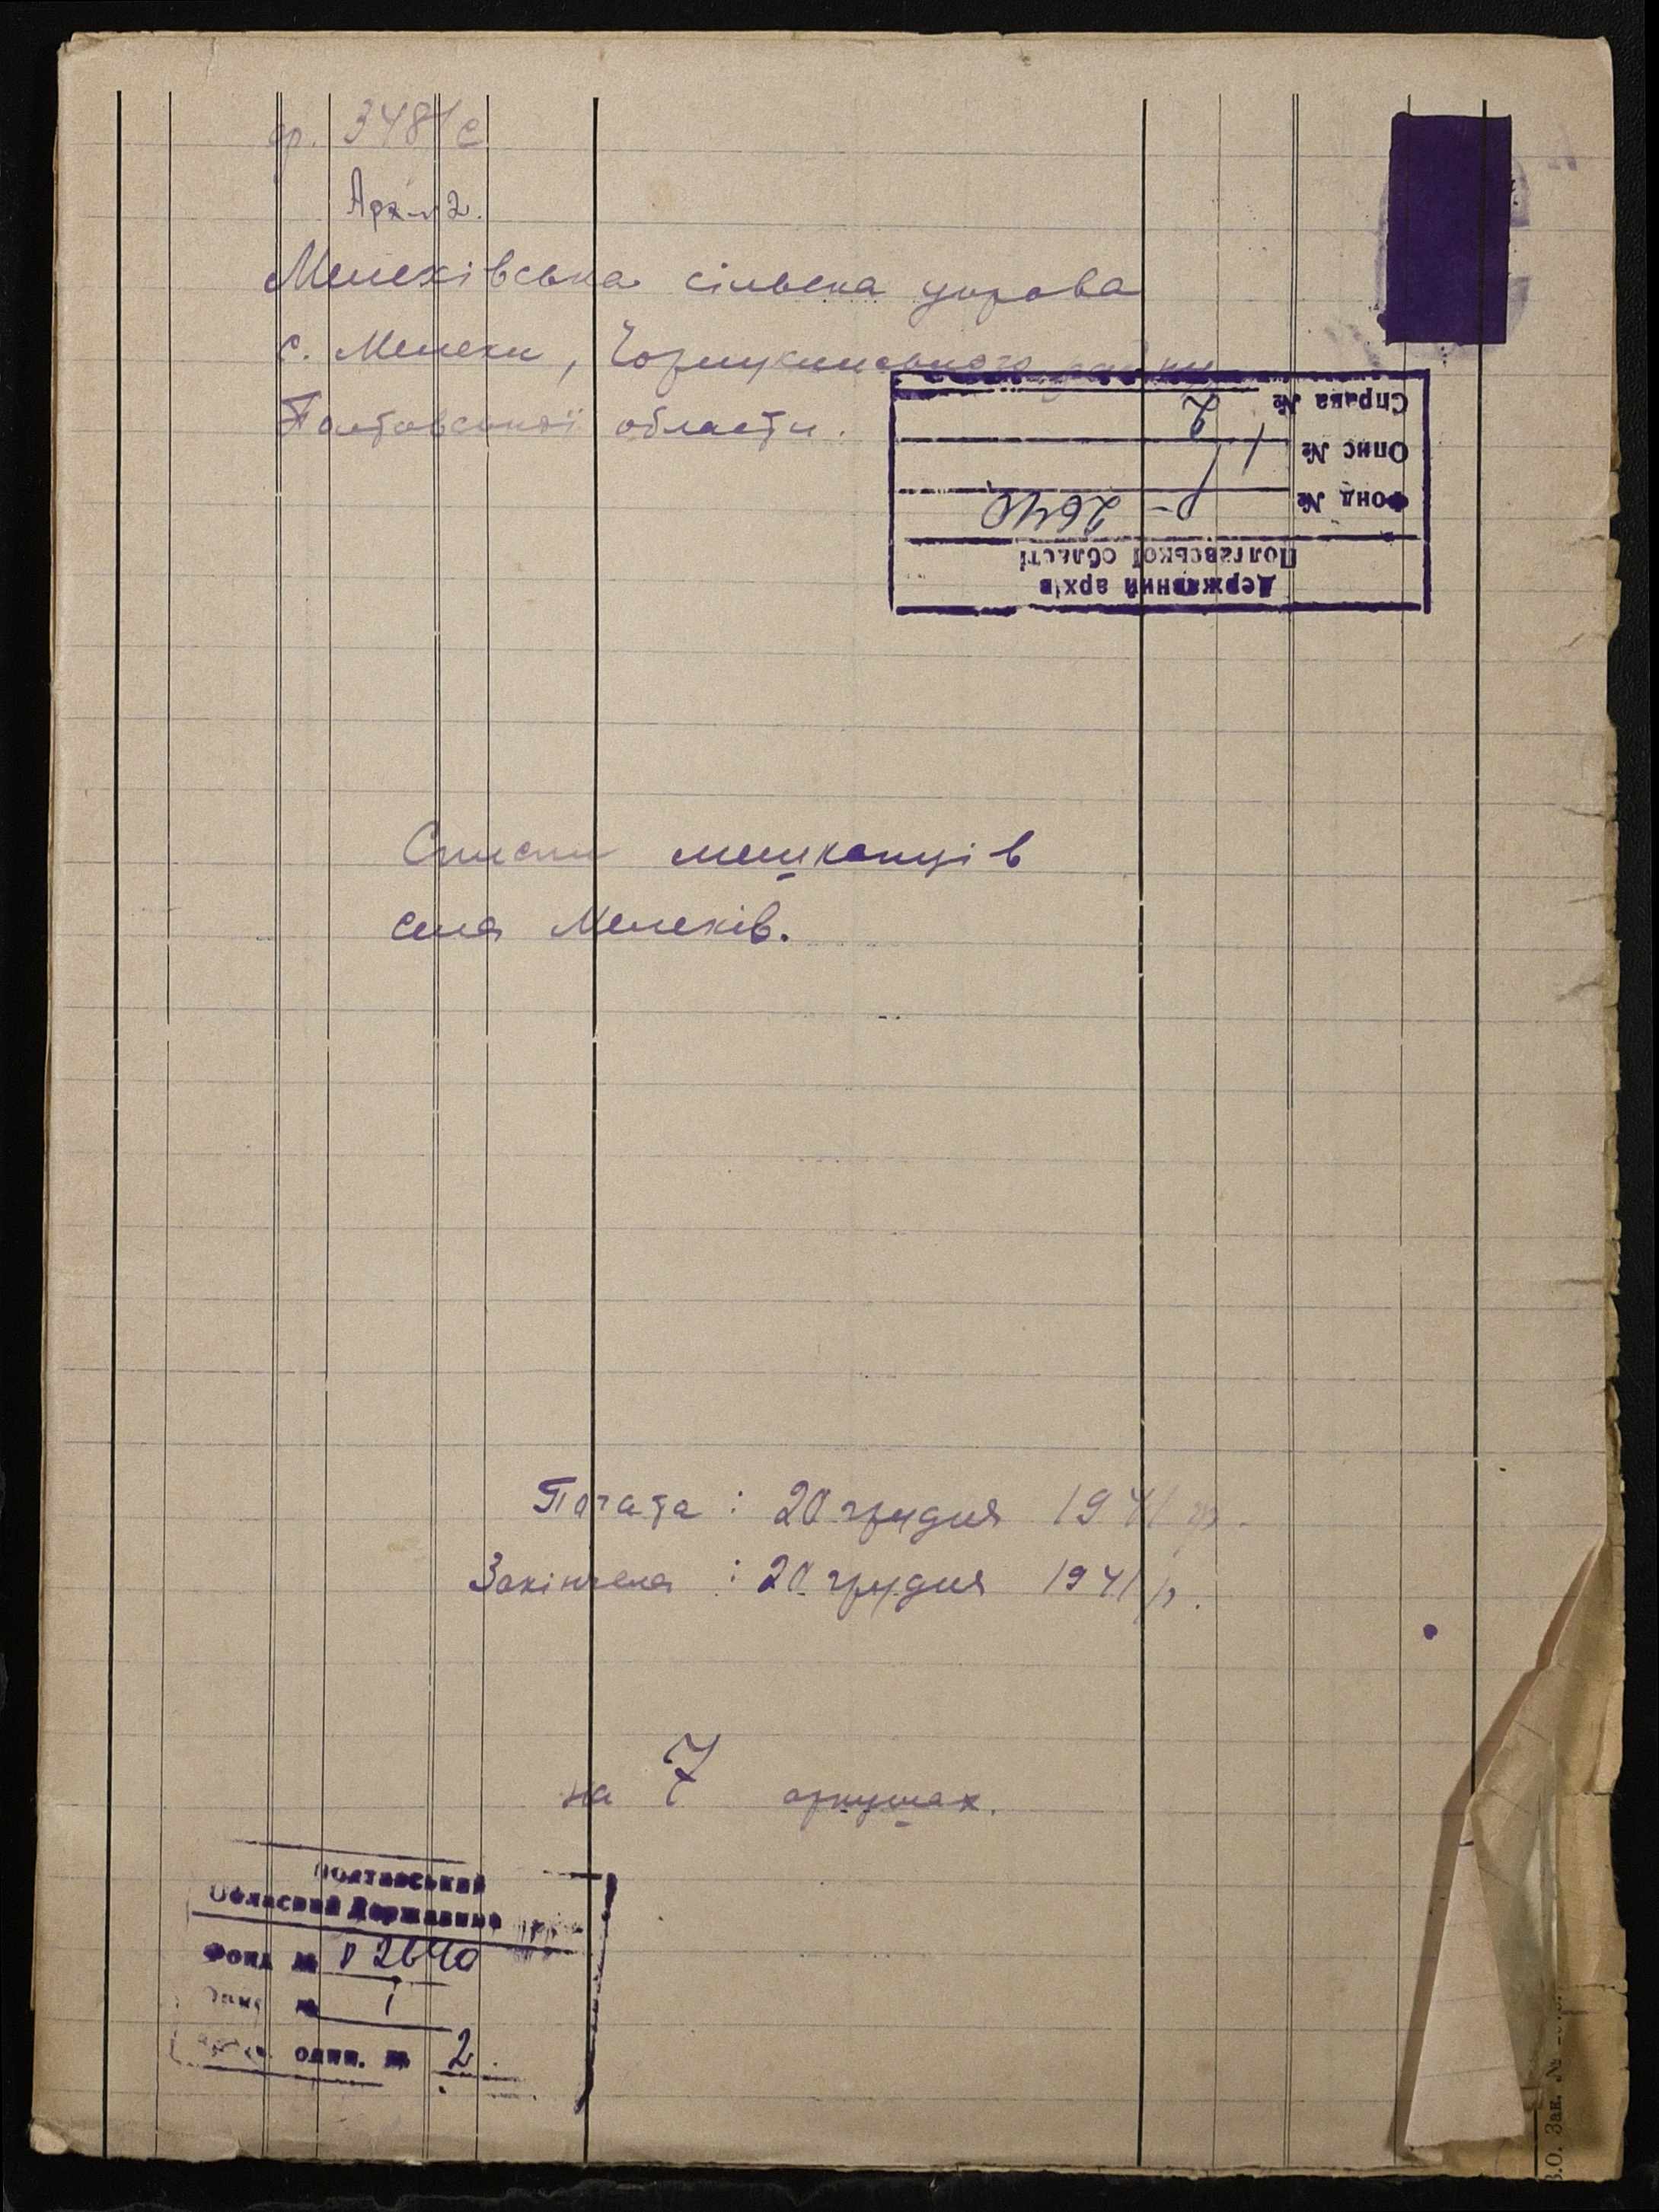 ф. 3481с
Мелехівська сільська управа
с. Мелехи, Чорнухинського району
Полтавської области.
Справа № 2
Опис № 1
Фонд № р-2640
Державний архів
Полтавської області
Списки мешканців
села Мелехів.
Почата: 20 грудня 1941 р.
Закінчена: 20 грудня 1941 р.
на 7 аркушах.
Полтавський
Обласний Державний
Фонд № р 2640
№ 1
один. № 2.
Зак. №